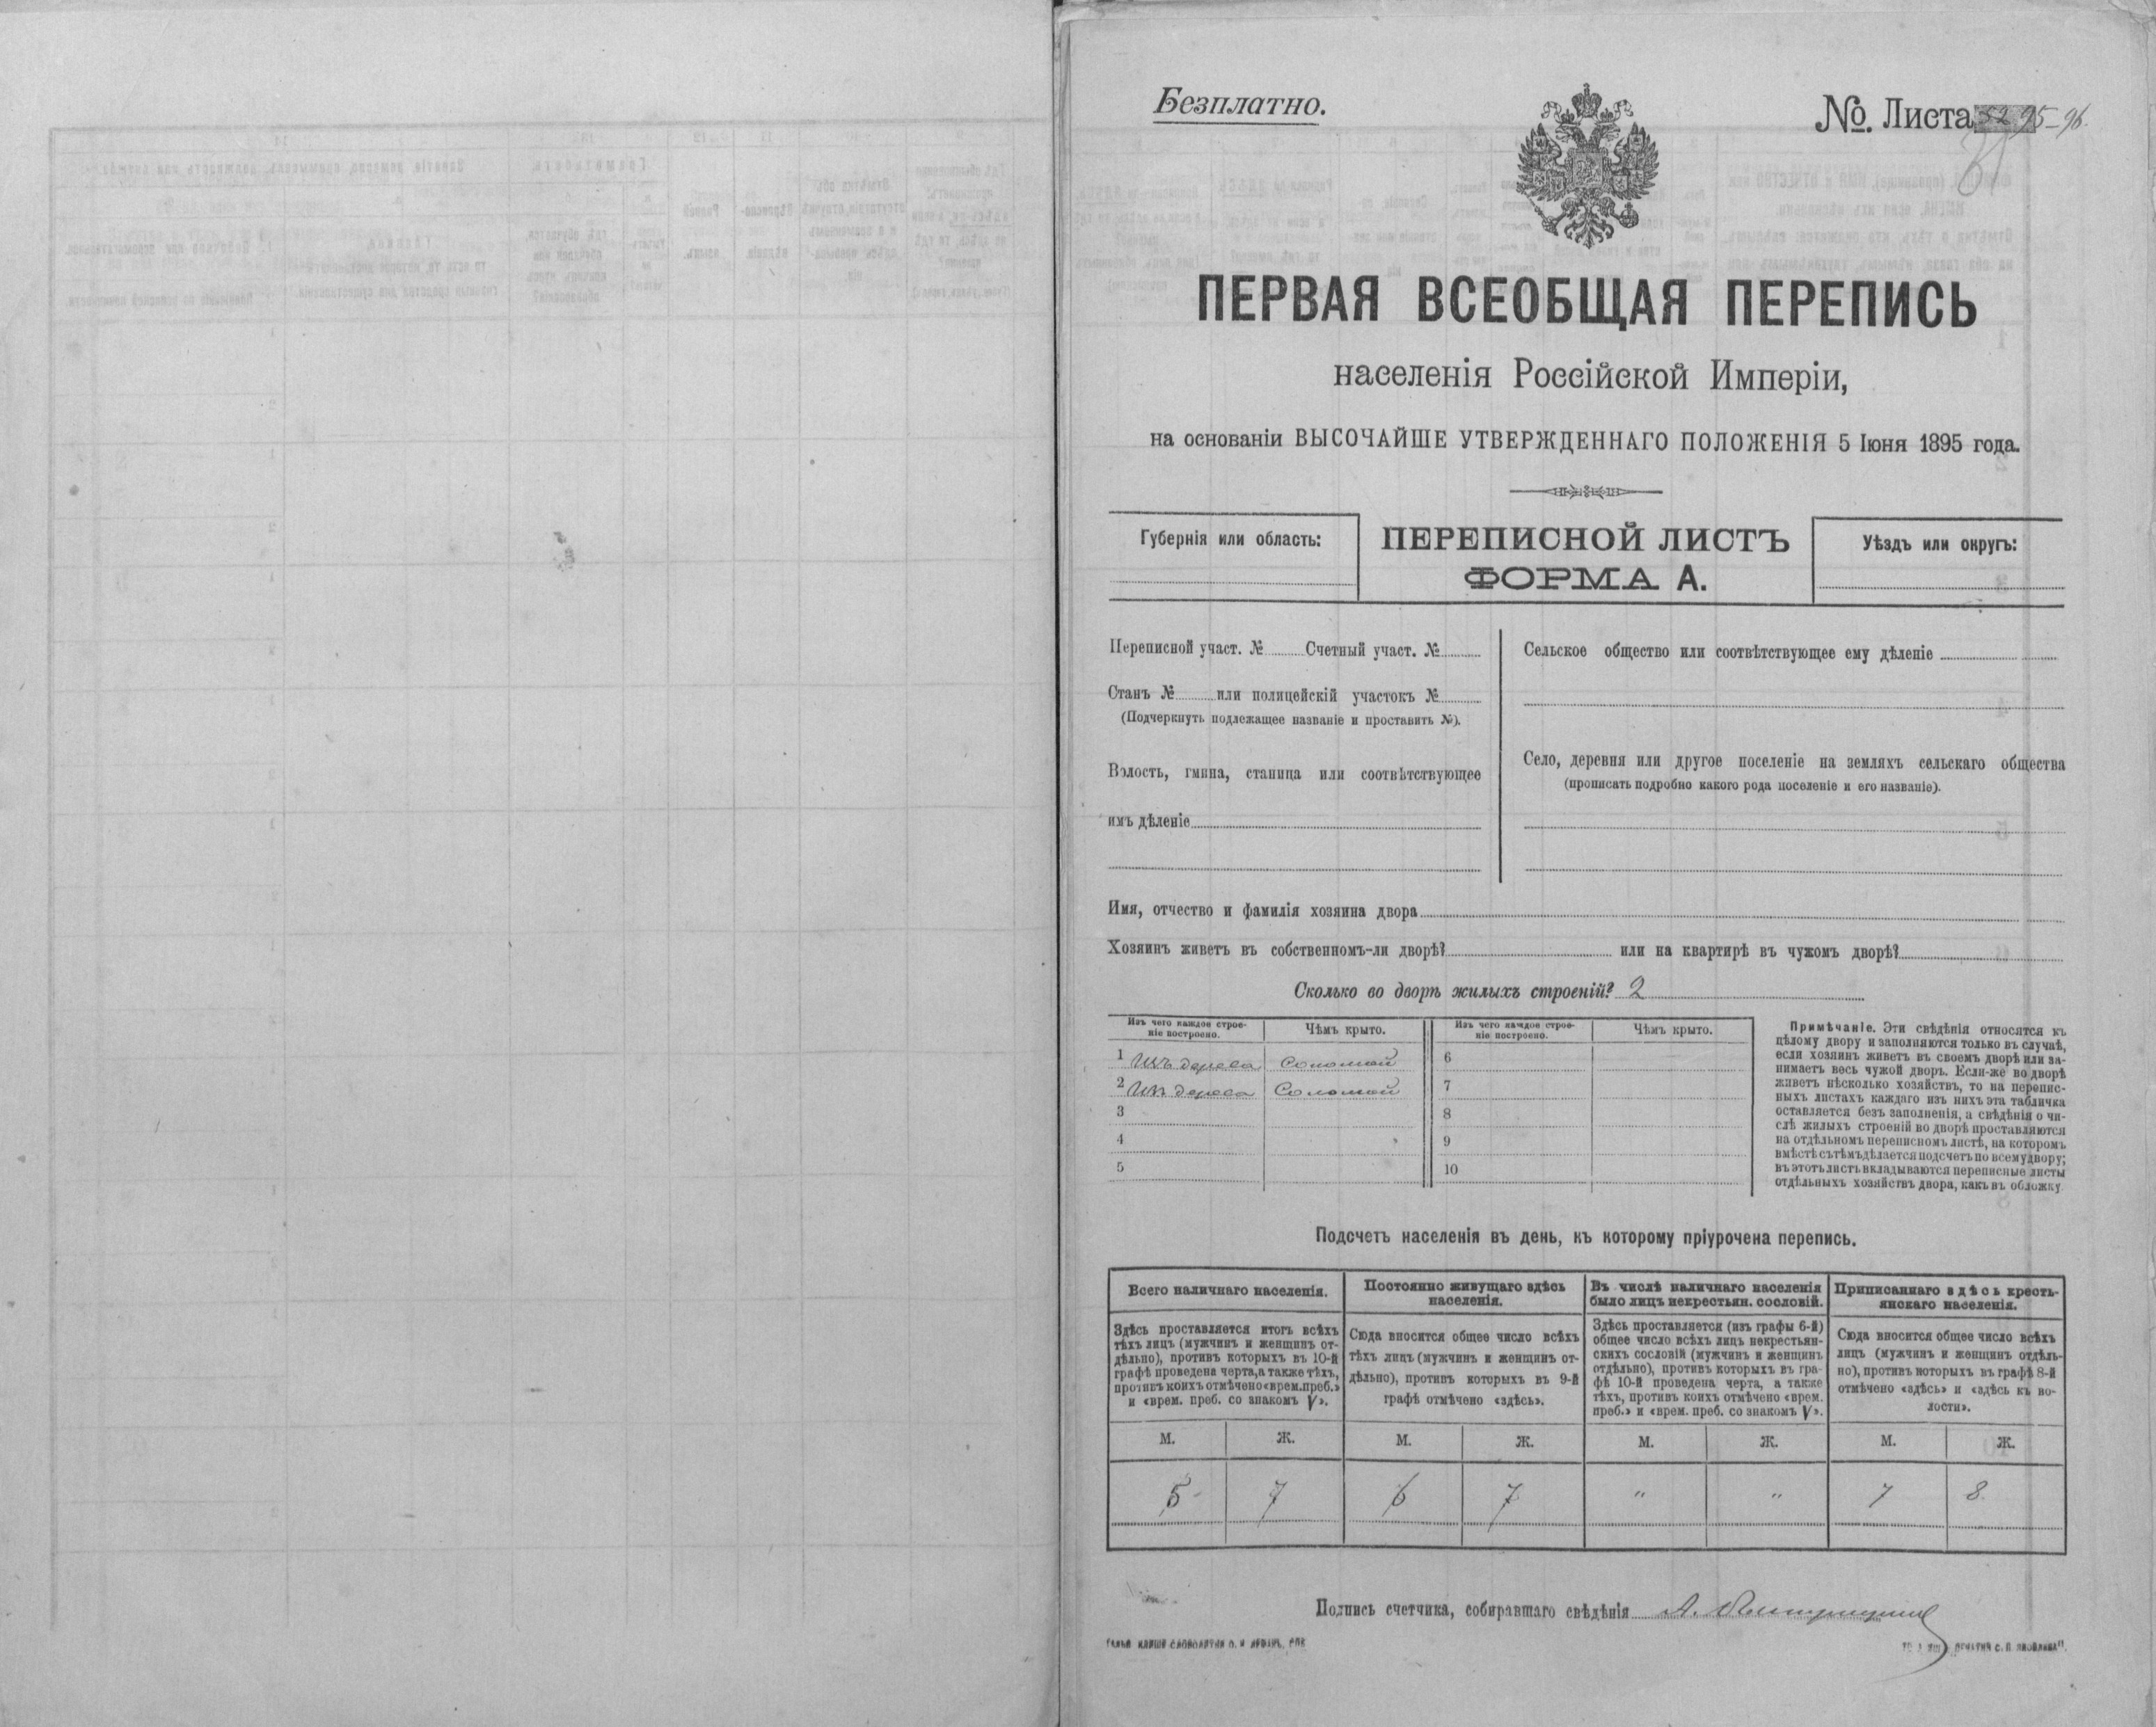 Безплатно.
№. Листа 95-96.
ПЕРВАЯ ВСЕОБЩАЯ ПЕРЕПИСЬ
населенія Россійской Имперіи,
на основаніи ВЫСОЧАЙШЕ УТВЕРЖДЕННАГО ПОЛОЖЕНІЯ 5 Іюня 1895 года.
Губернія или область:
ПЕРЕПИСНОЙ ЛИСТЪ
ФОРМА А.
Уѣздъ или округъ:
Переписной участ. № Счетный участ. №
Станъ № или полицейскій участокъ №
(Подчеркнуть подлежащее названіе и проставить №).
Волость, гмина, станица или соотвѣтствующее
имъ дѣленіе
Сельское общество или соотвѣтствующее ему дѣленіе
Село, деревня или другое поселеніе на земляхъ сельскаго общества
(прописать подробно какого рода поселеніе и его названіе).
Имя, отчество и фамилія хозяина двора
Хозяинъ живетъ въ собственномъ-ли дворѣ? или на квартирѣ въ чужомъ дворѣ?
Сколько во дворѣ жилыхъ строеній? 2
Изъ чего каждое строе-
ніе построено.
Чѣмъ крыто.
Изъ чего каждое строе-
ніе построено.
Чѣмъ крыто.
1 Изъ дерева Соломой 6
2 Изъ дерева Соломой 7
3 8
4 9
5 10
Примѣчаніе. Эти свѣдѣнія относятся къ
цѣлому двору и заполняются только въ случаѣ,
если хозяинъ живетъ въ своемъ дворѣ или за-
нимаетъ весь чужой дворъ. Если-же во дворѣ
живетъ нѣсколько хозяйствъ, то на перепис-
ныхъ листахъ каждаго изъ нихъ эта табличка
оставляется безъ заполненія, а свѣдѣнія о чи-
слѣ жилыхъ строеній во дворѣ проставляются
на отдѣльномъ переписномъ листѣ, на которомъ
вмѣстѣ съ тѣмъ дѣлается подсчетъ по всему двору;
въ этотъ листъ вкладываются переписные листы
отдѣльныхъ хозяйствъ двора, какъ въ обложку.
Подсчетъ населенія въ день, къ которому пріурочена перепись.
Всего наличнаго населенія.
Здѣсь проставляется итогъ всѣхъ
тѣхъ лицъ (мужчинъ и женщинъ от-
дѣльно), противъ которыхъ въ 10-й
графѣ проведена черта, а также тѣхъ,
противъ коихъ отмѣчено «врем. преб.»
и «врем. преб. со знакомъ V».
Постоянно живущаго здѣсь
населенія.
Сюда вносится общее число всѣхъ
тѣхъ лицъ (мужчинъ и женщинъ от-
дѣльно), противъ которыхъ въ 9-й
графѣ отмѣчено «здѣсь».
Въ числѣ наличнаго населенія
было лицъ некрестьян. сословій.
Здѣсь проставляется (изъ графы 6-й)
общее число всѣхъ лицъ некрестьян-
скихъ сословій (мужчинъ и женщинъ
отдѣльно), противъ которыхъ въ гра-
фѣ 10-й проведена черта, а также
тѣхъ, противъ коихъ отмѣчено «врем.
преб.» и «врем. преб. со знакомъ V».
Приписаннаго здѣсь кресть-
янскаго населенія.
Сюда вносится общее число всѣхъ
лицъ (мужчинъ и женщинъ отдѣль-
но), противъ которыхъ въ графѣ 8-й
отмѣчено «здѣсь» и «здѣсь къ во-
лости».
М. Ж. М. Ж. М. Ж. М. Ж.
5 7 6 7 " " 7 8
Подпись счетчика, собиравшаго свѣдѣнія А.